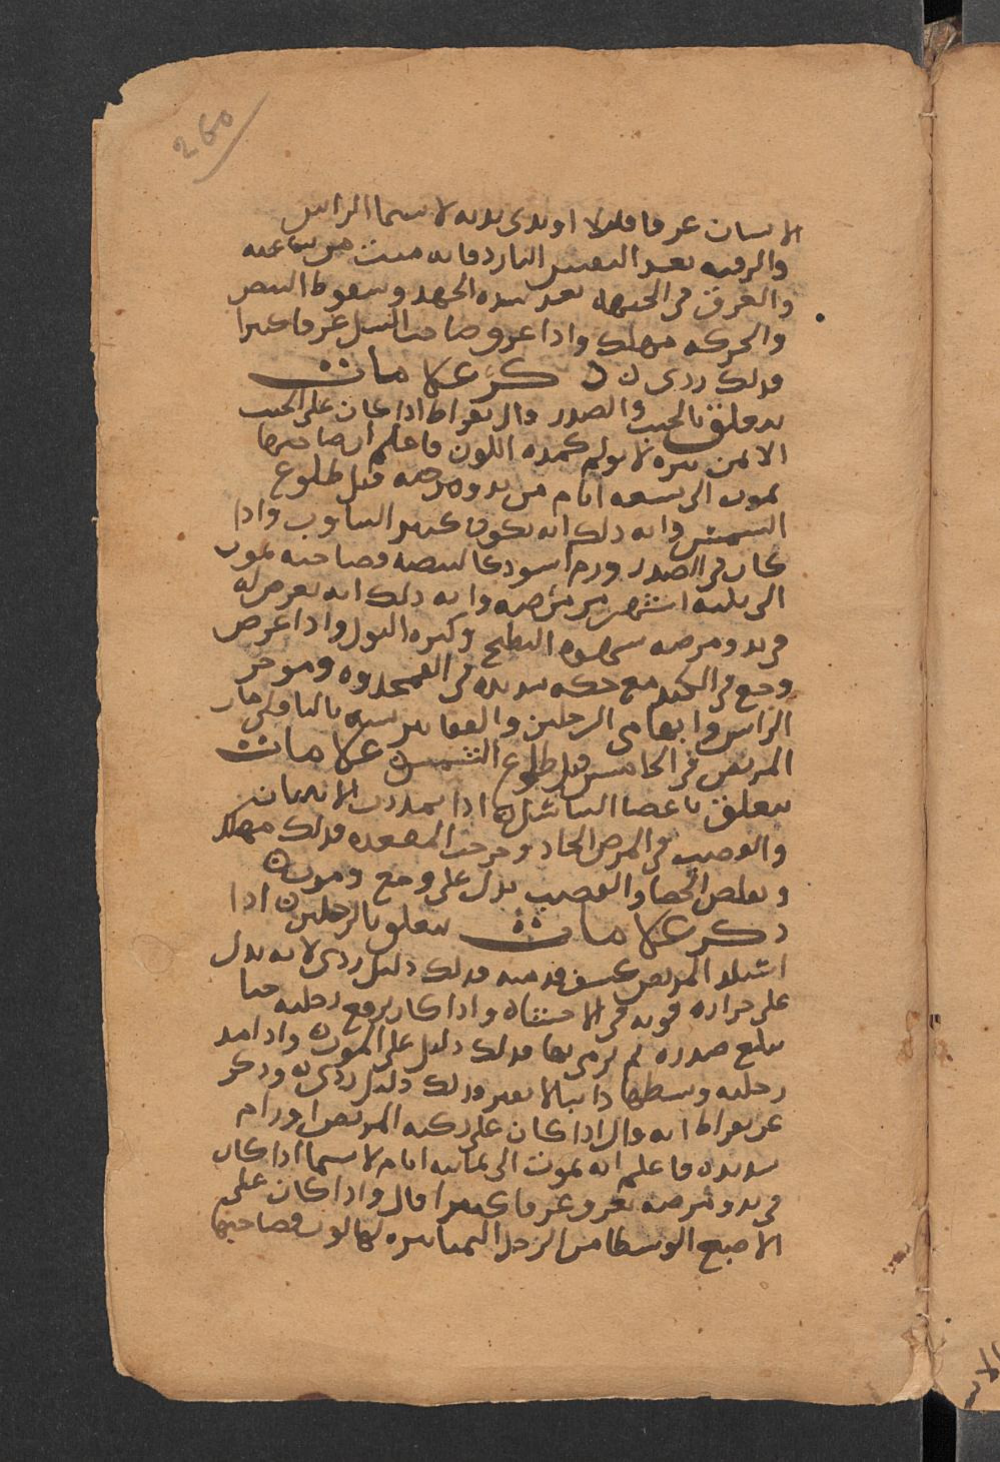 260
الانسان عرقا قليلا او ندى بدنه لا سيما الراس
والرقبه بعد النفس البارد فانه ميت من ساعته
والعرق في الجبهه بعد شده الجهد وسقوط النبض
والحركه مهلك واذا عرق صاحب السل عرقا كثيرا
فذلك ردى ذكر علامات
تتعلق بالجنب والصدر قال بقراط اذا كان على الجنب
الايمن بثره لا تولم كمده اللون فاعلم ان صاحبها
يموت الى تسعه ايام من بدو مرضه قبل طلوع
الشمس وايه ذلك انه يكون كثير التثاوب واذا
كان في الصدر ورم اسود كالبيضه فصاحبه يموت
الى ثلثه اشهر من مرضه وايه ذلك انه يعرض له
في بدو مرضه شهوه البطيخ وكثره البول واذا عرض
وجع في الكبد مع حكه شديده في القمحدوه وموخر
الراس وابهامى الرجلين والقفا بثر شبيه بالباقلى مات
المريض في الخامس قبل طلوع الشمس علامات
تتعلق باعضا التناسل اذا تمددت الانثيان
والقضيب في المرض الحاد وخرجت المقعده فذلك مهلك
وتقلص الخصا والقضيب يدل على وجع وموت
ذكر علامات تتعلق بالرجلين اذا
المريض كشف قدميه فذلك دليل ردى لانه يدل
على حراره قويه في الاحشاء واذا كان يرفع رجليه حتا
تبلغ صدره ثم يرمى بها فذلك دليل على الموت واذا مد
رجليه وبسطها دايبا لا يفتر فذلك دليل ردى وذكر
عن بقراط انه قال اذا كان على ركبه المريض اورام
شديده فاعلم انه يموت الى ثمانيه ايام لا سيما اذا كان
في بدو مرضه يعرق عرقا كثيرا قال واذا كان على
الاصبع الوسطا من الرجل اليمنا بثره لها لون فصاحبها